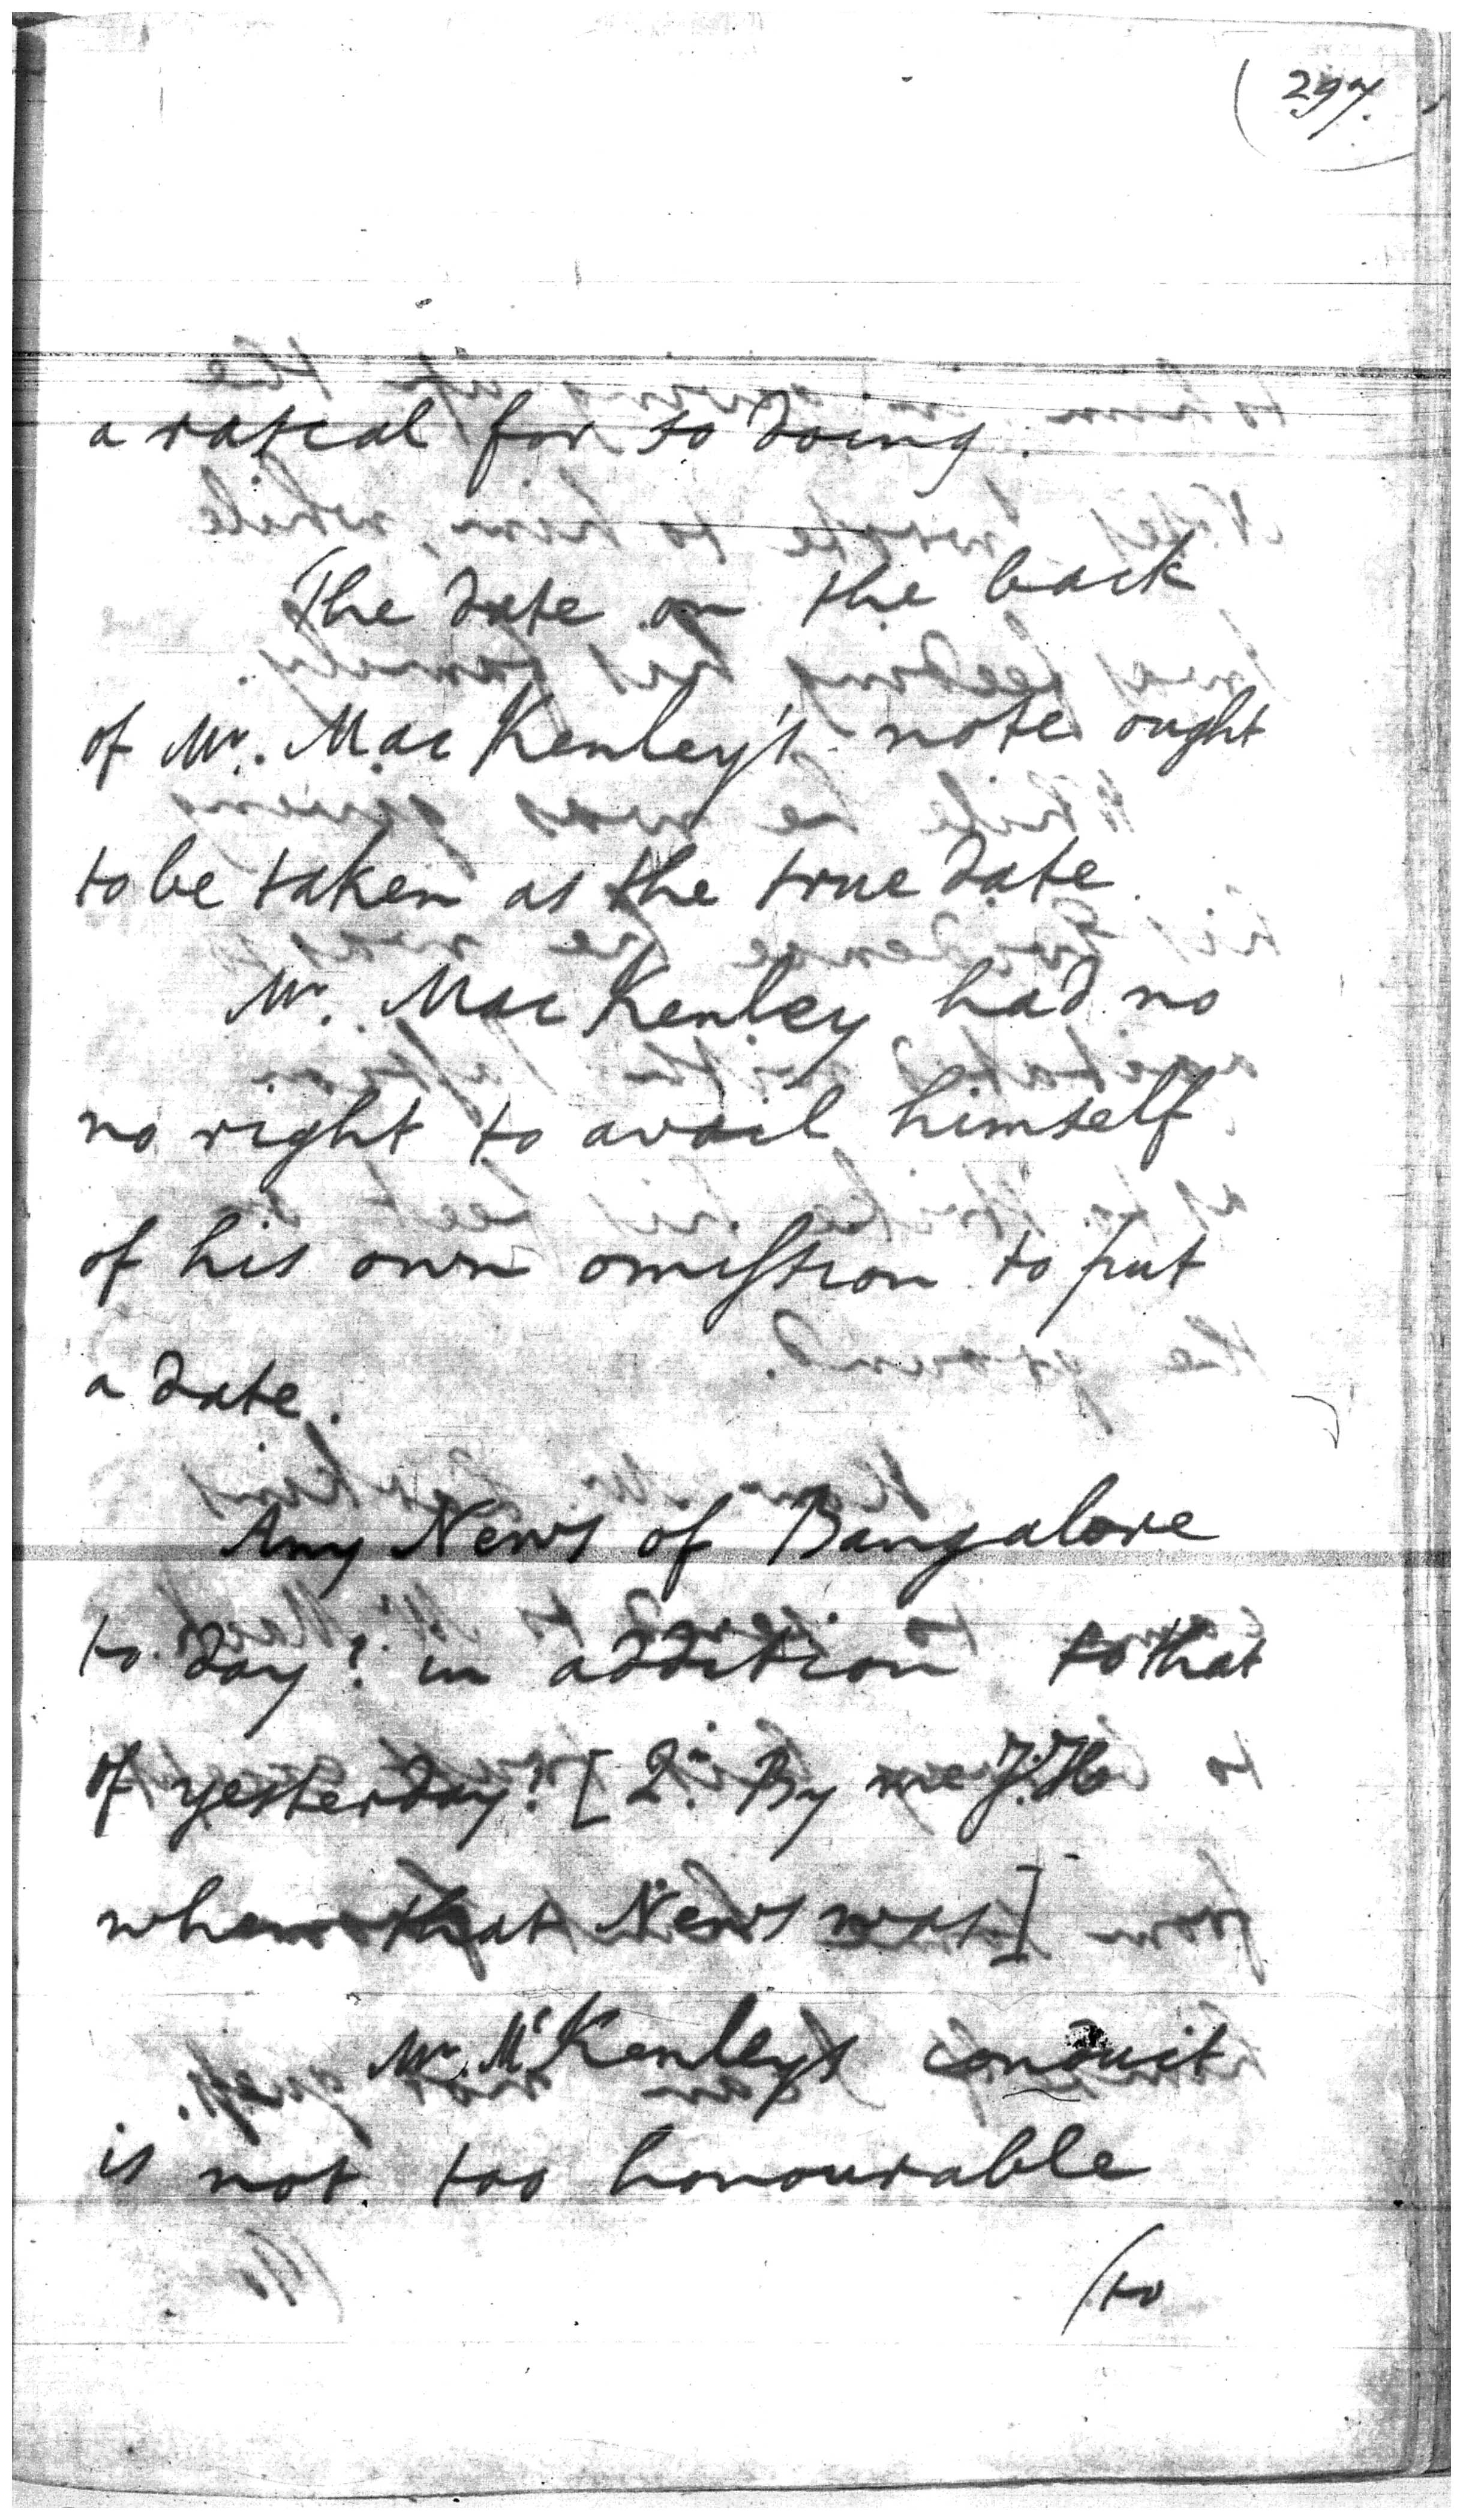 (297.
a rascal for so doing.
The date on the back
of Mr. MacKenley's note ought
to be taken as the true date.
Mr. MacKenley had no
no right to avail himself
of his own omission to put
a date.
Any News of Bangalore
to day? in addition to that
of yesterday? [Q. By me J. H.
when that News was]
Mr. McKenley's conduct
is not too honourable
(to